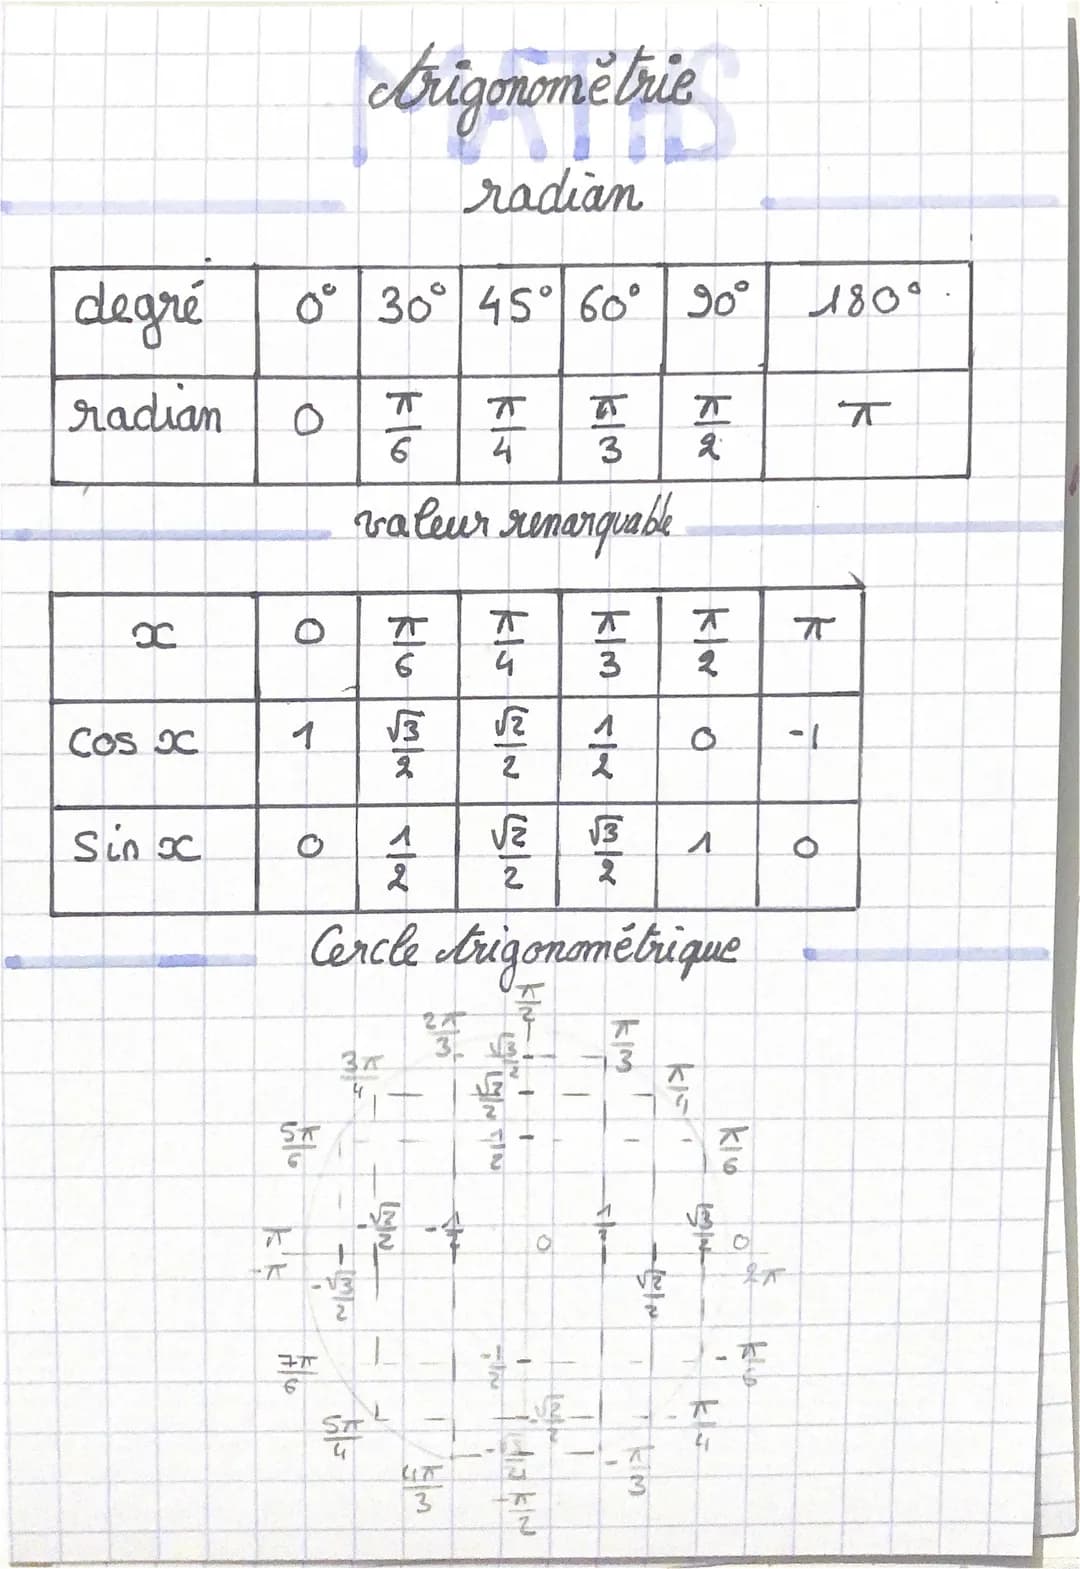 MATHS
trigonométrie
radian
degré 0° 30° 45° 60° 90° 180°
radian 0 π/6 π/4 π/3 π/2 π
valeur remarquable
x 0 π/6 π/4 π/3 π/2 π
cos x 1 √3/2 √2/2 1/2 0 -1
Sin x 0 1/2 √2/2 √3/2 1 0
Cercle trigonométrique
π/2
2π/3 √3/2 π/3
3π/4 √2/2 π/4
5π/6 1/2 π/6
π -√2/2 -1/2 0 1/2 √3/2 0
-π -√3/2 √2/2 2π
7π/6 -1/2 -π/6
5π/4 -√2/2 -π/4
4π/3 -π/3
-π/2